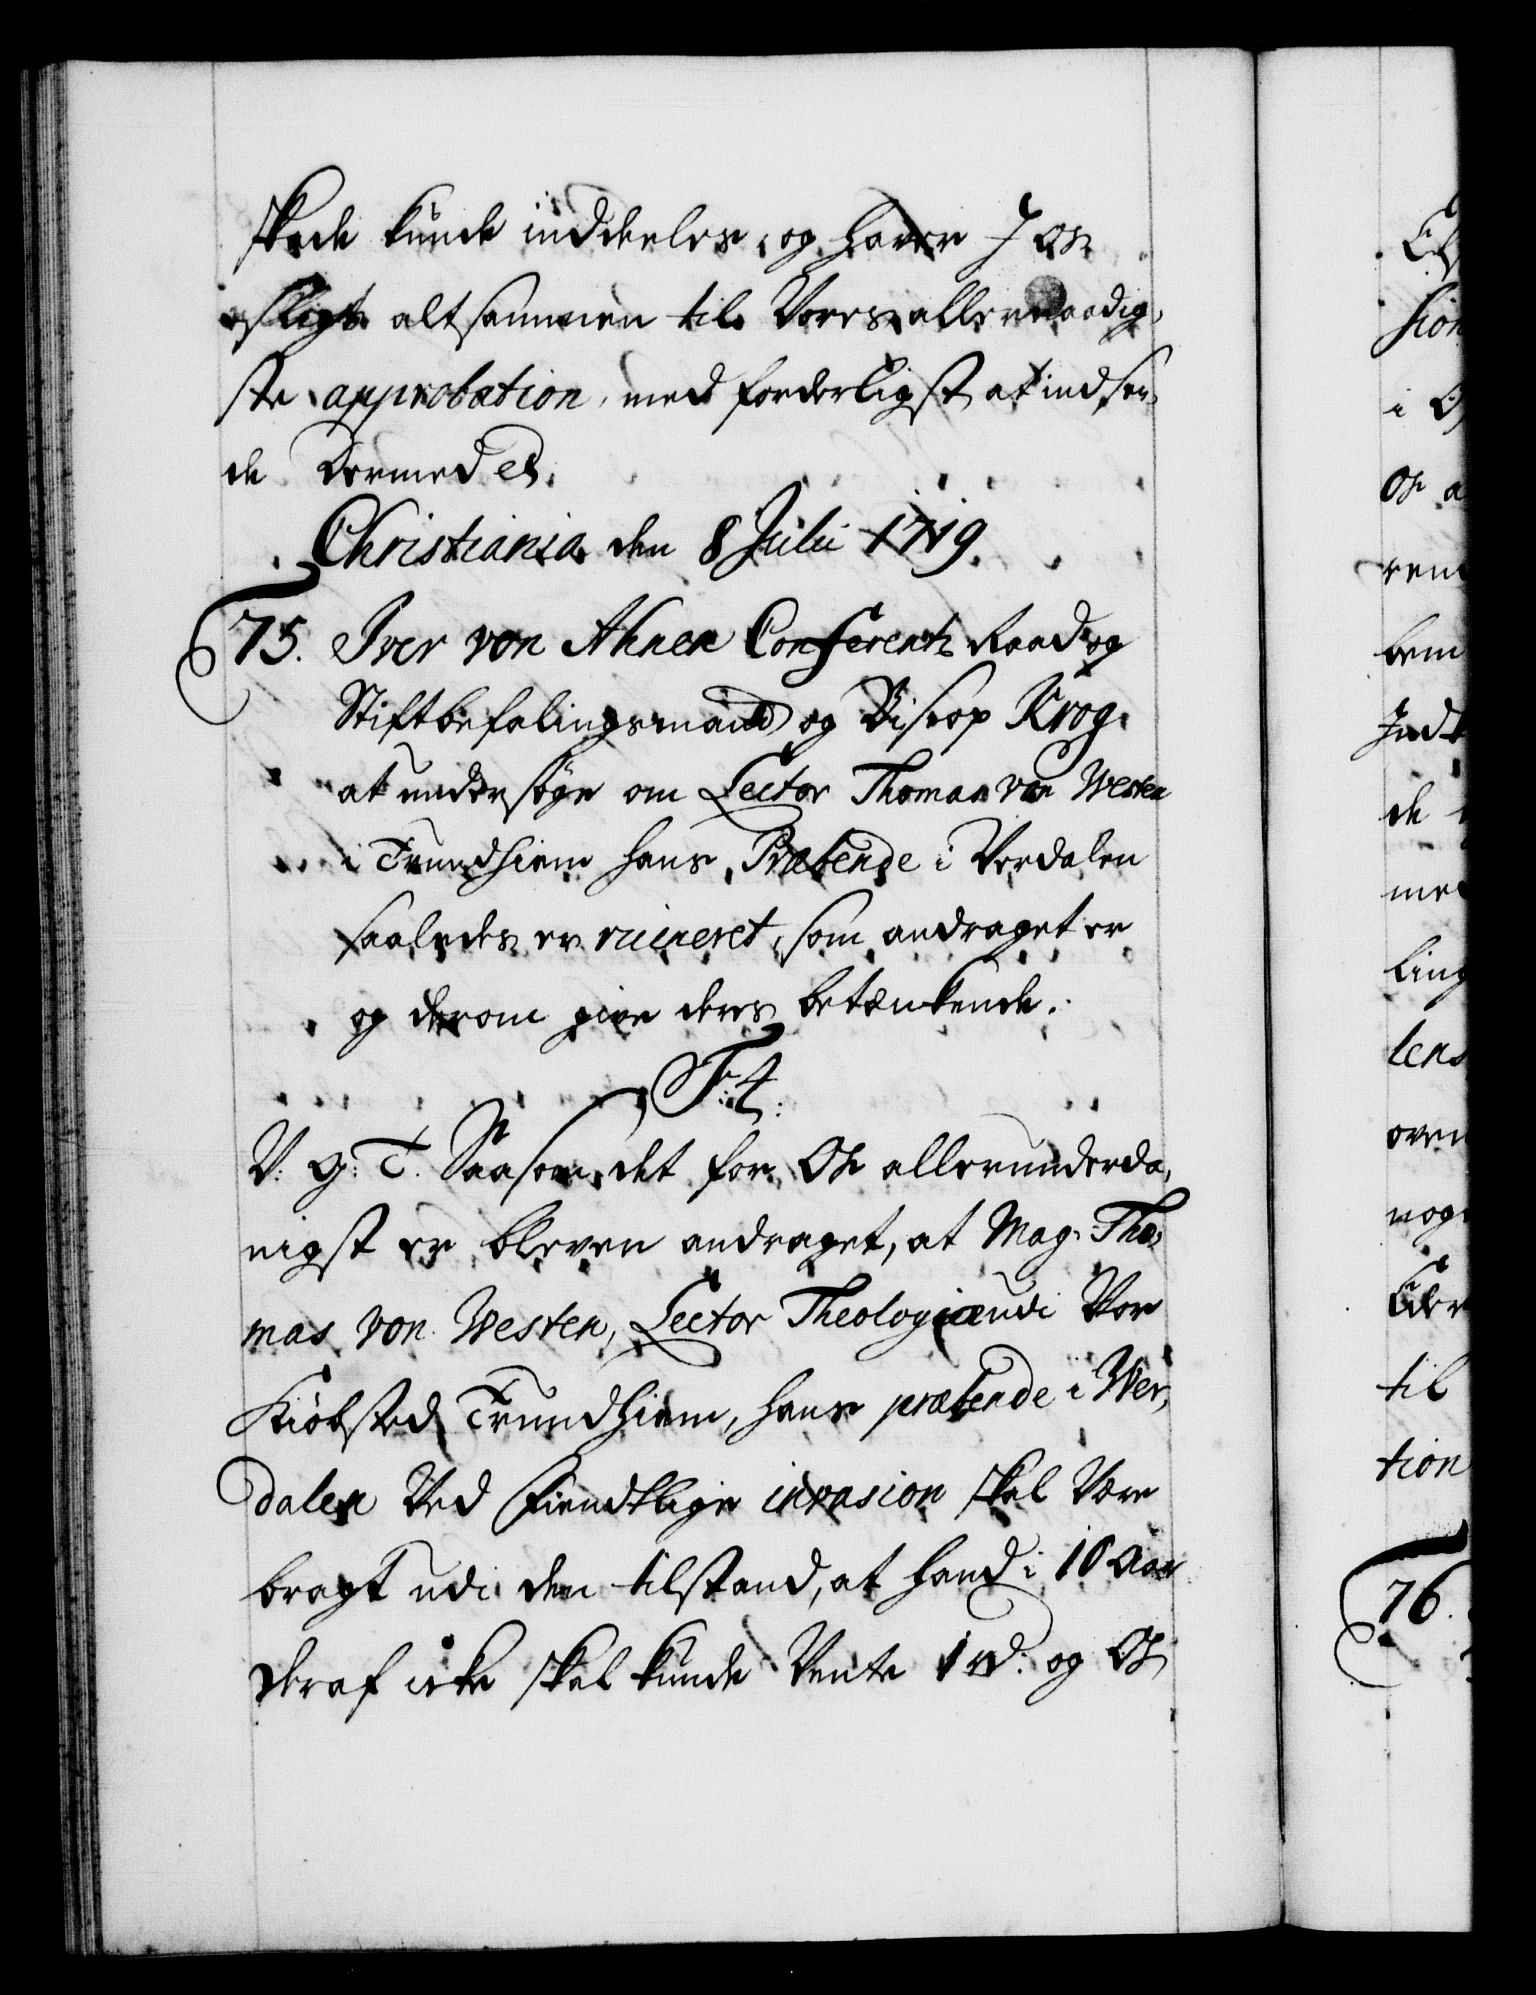 skede kunde inddeeles, og haver I os
sligt altsammen til Vores allernaadig,
ste approbation med forderligst at indsen,
de Dermed etc.
Christiania den 8 Julii 1719.
75. Iver von Ahnen Conferentz Raad og
Stiftbefalingsmand og Biskop Krog
at undersøge om Lector Thomas von Westen
i Trundhiem hans Præbende i Verdalen
saaledes er ruineret, som andraget er
og derom give deres betænkende.
F: 4.
V. G: T. Saasom det for Os allerunderda,
nigst er bleven andraget, at Mag: Tho,
mas von Westen, Lector Theologiæ udi Vor
Kiøbsted Trundhiem, hans præbende i Wer,
dalen Ved fiendtlige invasion skal Være
bragt udi den tilstand, at hand i 10 Aar
deraf icke skal kunde Vente 1 rd: og Os
Sion
i
Os a
bem
Ind
de
me
ling
lens
oven
nog
Eder
til
tion
76.